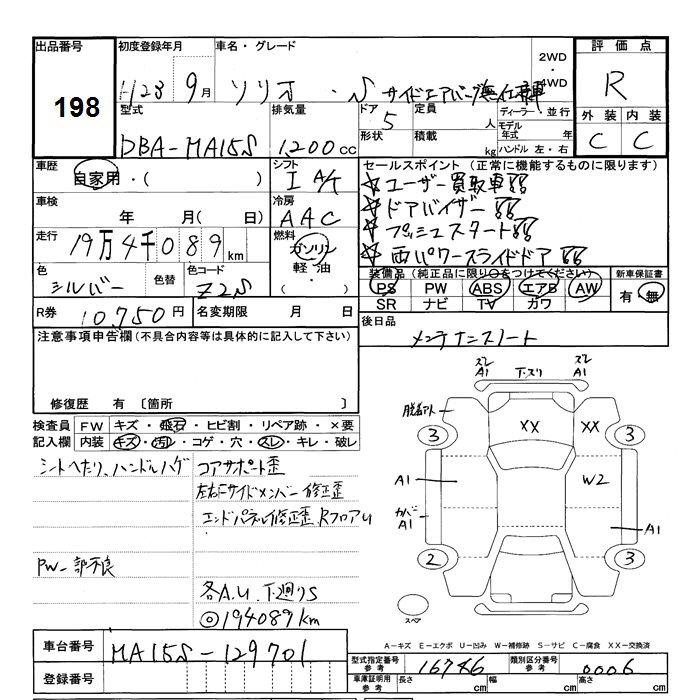 出品番号 初度登録年月 車名・グレード 評価点
198
H23 9月 ソリオ・S サイドエアバッグ無仕様
2WD・4WD
R
型式 排気量 ドア 定員 ディーラー・並行
DBA-MA15S 1,200cc 5 人 モデル年式 年
形状 積載 kg ハンドル 左・右
外装 内装
C C
車歴 シフト セールスポイント (正常に機能するものに限ります)
自家用・( ) I A/T
☆ユーザー買取車!!
☆ドアバイザー!!
☆プッシュスタート!!
☆両パワースライドドア!!
車検 冷房
年 月( 日) AAC
走行 燃料
19万4千089km ガソリン
軽油・
( )
色 色替 色コード
シルバー Z2S
装備品 (純正品に限り○をつけてください) 新車保証書
PS PW ABS エアB AW 有・無
SR ナビ TV カワ
R券 10,750円 名変期限 月 日
後日品
メンテナンスノート
注意事項申告欄(不具合内容等は具体的に記入して下さい)
修復歴 有 〔箇所 〕
検査員 FW キズ・飛石・ヒビ割・リペア跡・×要
記入欄 内装 キズ・汚れ・コゲ・穴・スレ・キレ・破レ
シートヘたり、ハンドルハゲ
コアサポート歪
左右Fサイドメンバー修正歪
エンドパネル修正歪 RフロアU
PW一部不良
各A.U. 下廻りS
◎194089km
スレ A1
下スリ
スレ A1
脱着アト
XX
XX
3
3
A1
W2
カバー A1
A1
2
3
スペア
A-キズ E-エクボ U-凹み W-補修跡 S-サビ C-腐食 XX-交換済
車台番号 MA15S-129701
登録番号
型式指定番号 参考 16746 類別区分番号 参考 0006
車庫証明用 参考 長さ cm 幅 cm 高さ cm